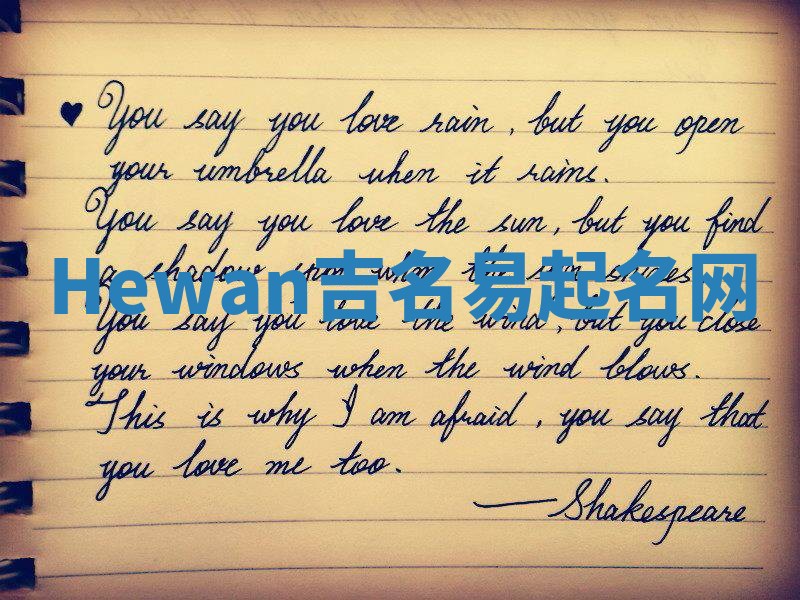 ♥ You say you love rain, but you open
your umbrella when it rains.
You say you love the sun, but you find
a shadow spot when the sun shines.
Hewan吉名易起名网
You say you love the wind, but you close
your windows when the wind blows.
This is why I am afraid, you say that
you love me too.
—Shakespeare